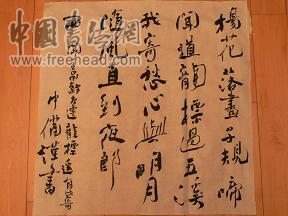 中國書法網
www.freehead.com
楊花落盡子規啼
聞道龍標過五溪
我寄愁心與明月
隨風直到夜郎
西聞王昌齡左遷龍標遙有此寄
書